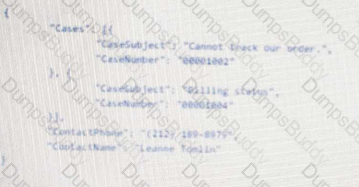 {
"Cases": [{
"CaseSubject": "Cannot track our order.",
"CaseNumber": "00001002"
}, {
"CaseSubject": "Billing status",
"CaseNumber": "00001004"
}],
"ContactPhone": "(212) 189-8979",
"ContactName": "Leanne Tomlin"
}
DumpsBuddy